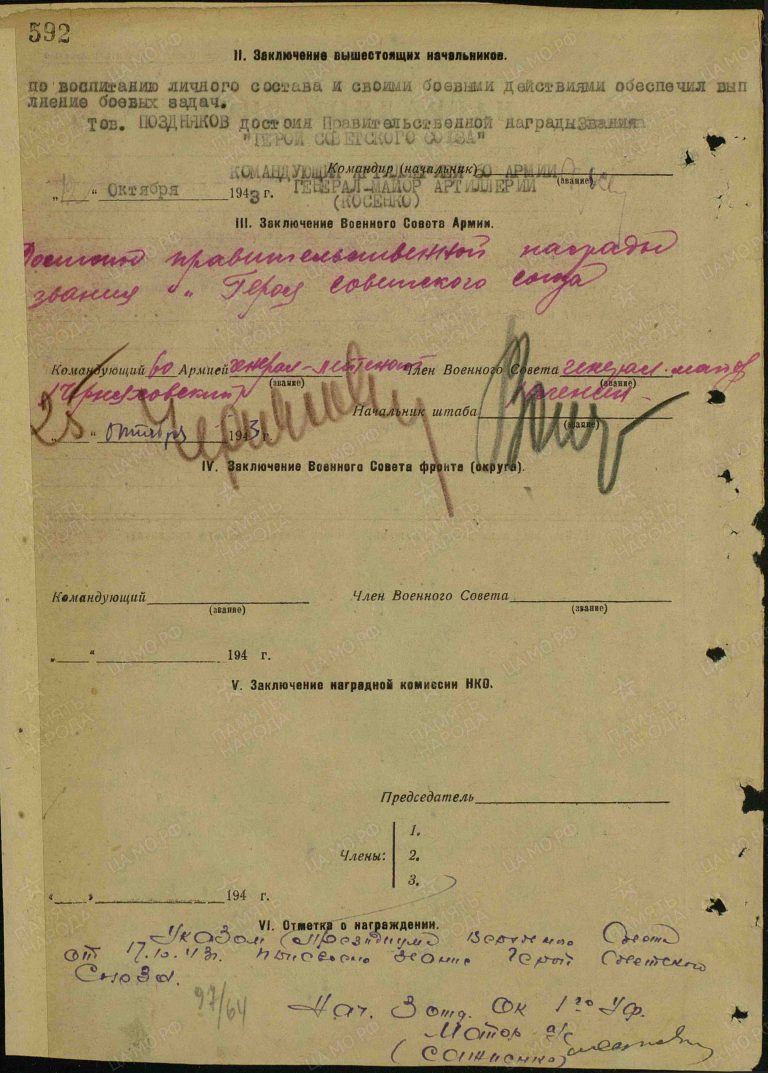 592
II. Заключение вышестоящих начальников.
по воспитанию личного состава и своими боевыми действиями обеспечил вып
лнение боевых задач.
Тов. ПОЗДНЯКОВ достоин Правительственной награды Звания
"ГЕРОЙ СОВЕТСКОГО СОЮЗА"
КОМАНДУЮЩИЙ АРТИЛЛЕРИЕЙ 60 АРМИИ
Командир (начальник)
ГЕНЕРАЛ-МАЙОР АРТИЛЛЕРИИ
(звание)
"12" Октября 1943 г.
(КОСЕНКО)
III. Заключение Военного Совета Армии.
Достоин правительственной награды
звания "Героя Советского союза
Командующий 60 Армией генерал-лейтенант Член Военного Совета генерал-майор
(звание) (звание)
/Черняховский
Начальник штаба
(звание)
25 " октября 1943 г.
IV. Заключение Военного Совета фронта (округа).
Командующий Член Военного Совета
(звание) (звание)
" " 194 г.
V. Заключение наградной комиссии НКО.
Председатель
1.
Члены: 2.
3.
" " 194 г.
VI. Отметка о награждении.
Указом Президиума Верховного Совета
от 17.10.43г. присвоено звание Герой Советского
Союза.
97/64
Нач. 3 отд. ОК 1го Уф.
Майор а/с